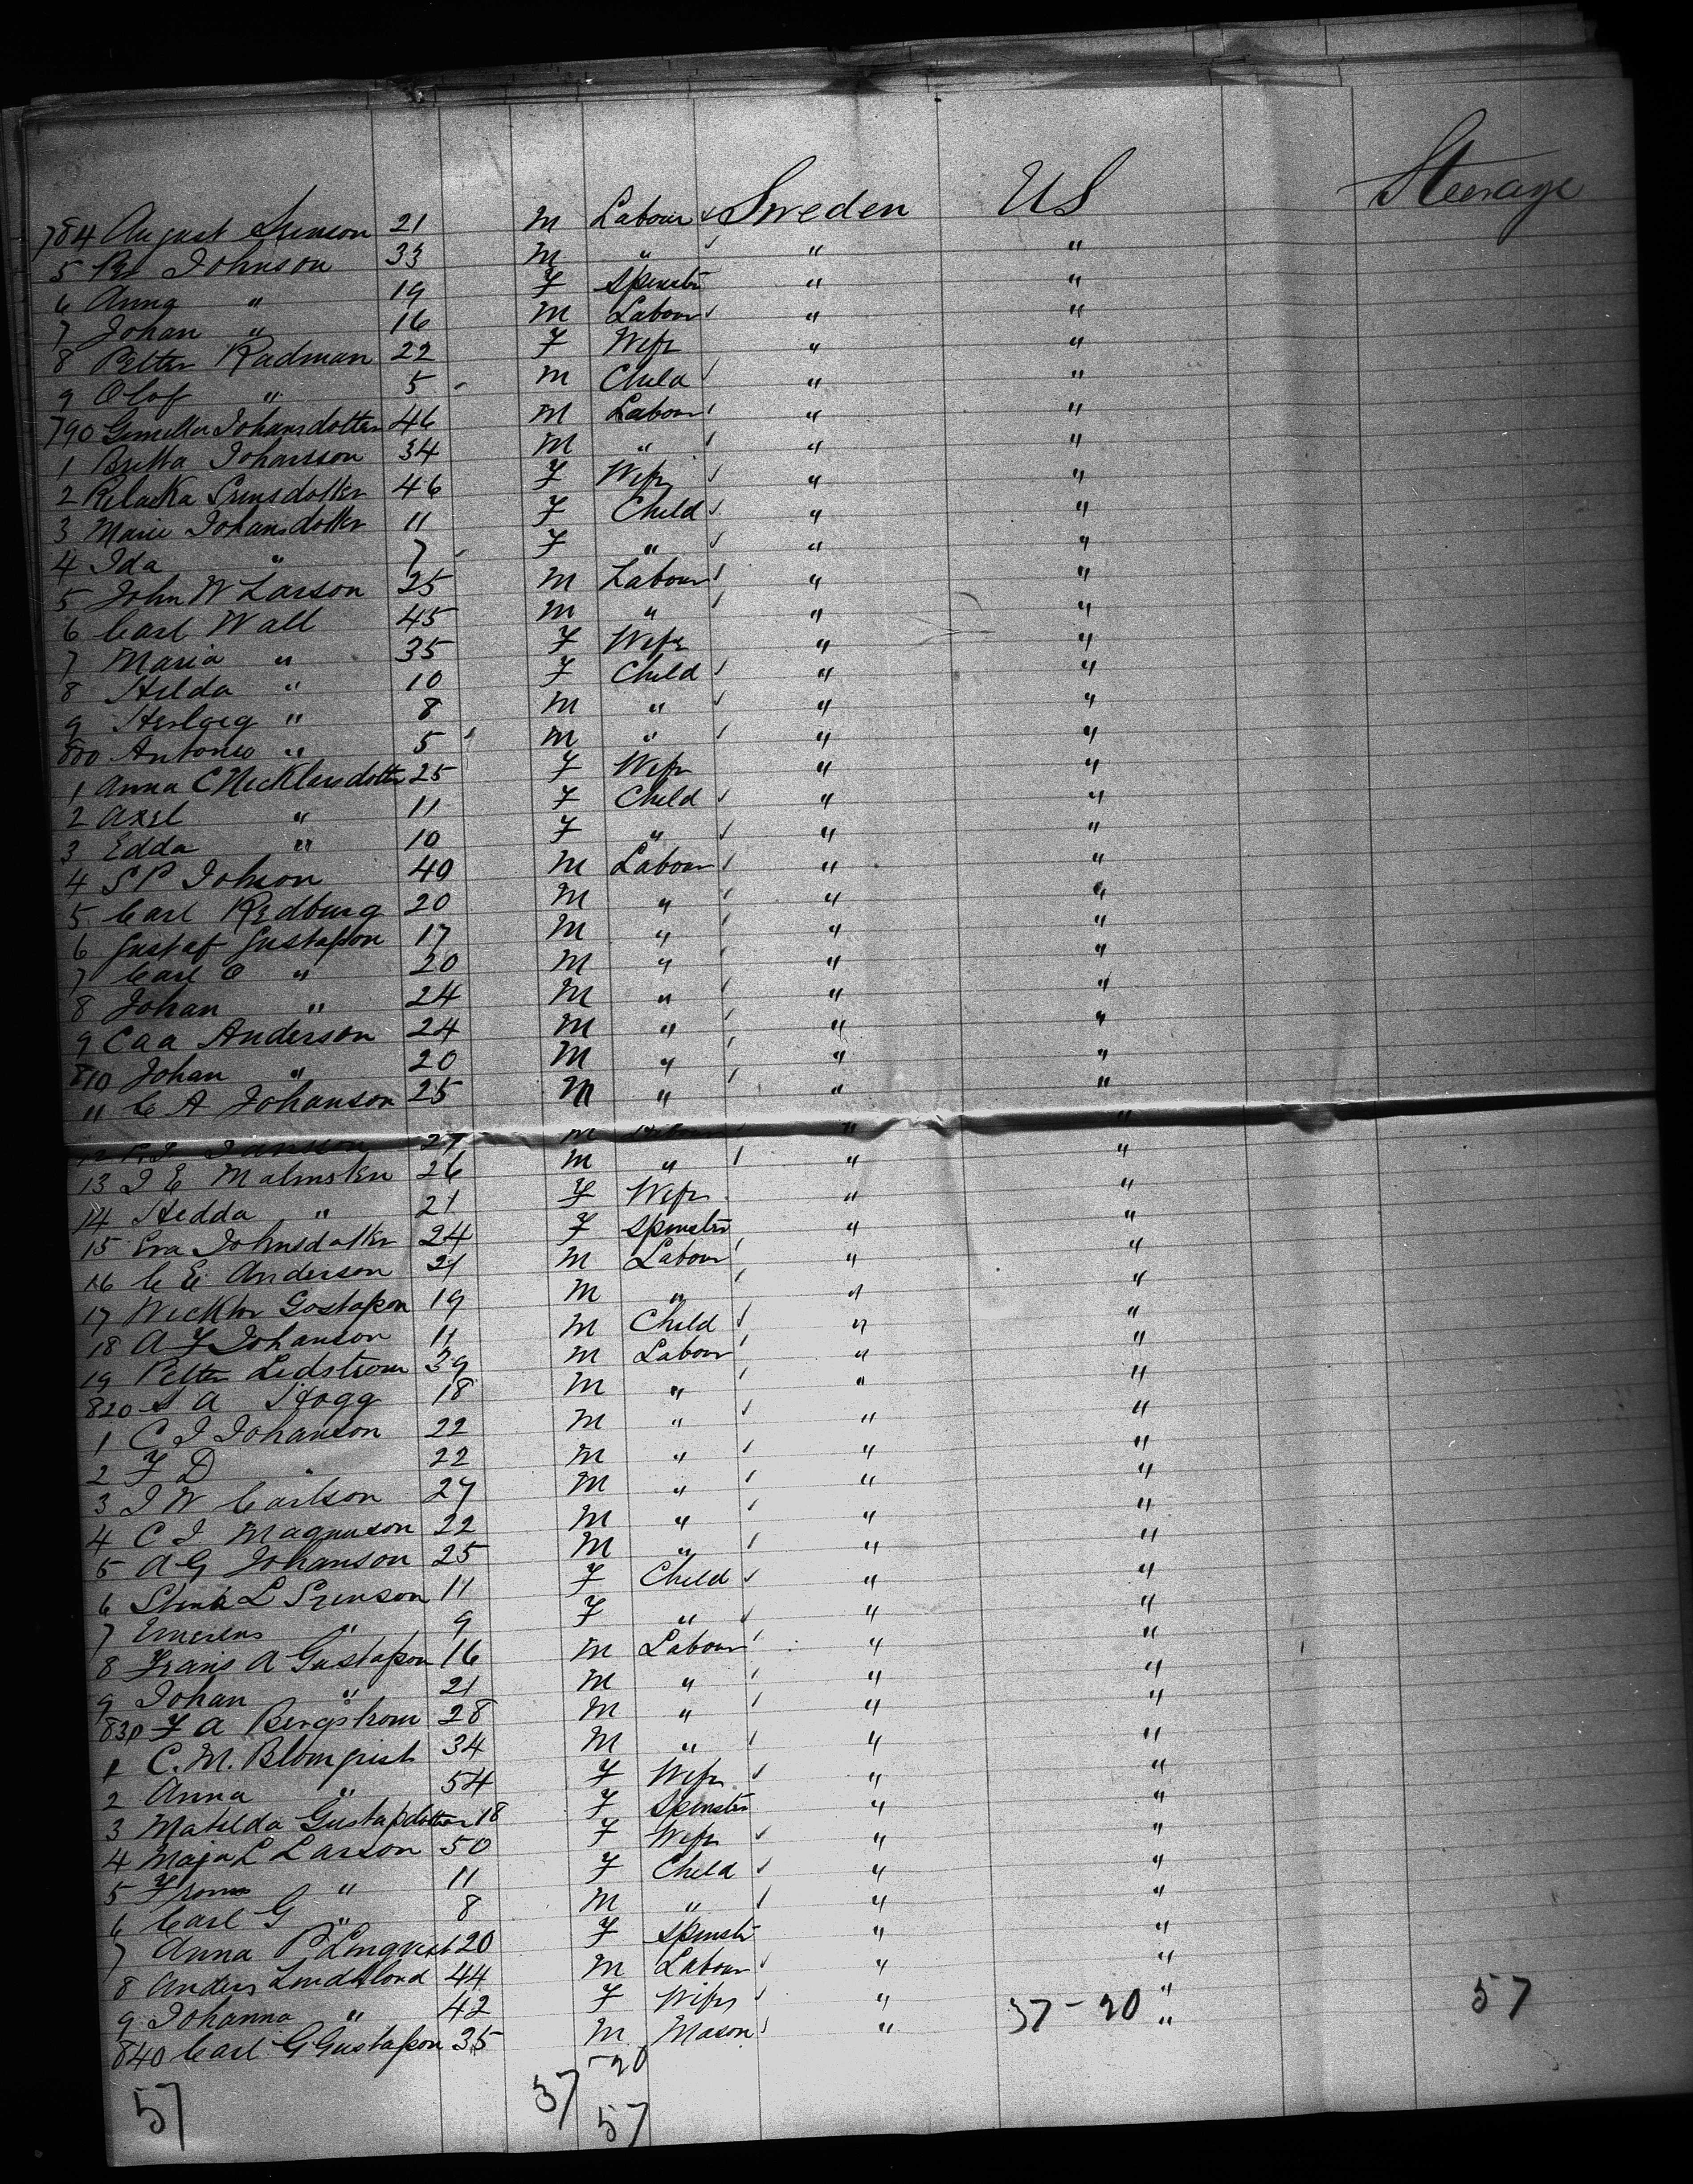 784 August Svenson 21 M Labour Sweden US Steerage
5 Per Johnson 33 M " " "
6 Anna " 19 F Spinster " "
7 Johan " 16 M Labour " "
8 Petter Radman 22 F Wife " "
9 Olof " 5 M Child " "
790 Johansdotter 46 M Labour " "
1 Britta Johansson 34 M " " "
2 46 F Wife " "
3 Marie Johansdotter 11 F Child " "
4 Ida " 7 F " " "
5 John W Larson 25 M Labour " "
6 Carl Wall 45 M " " "
7 Maria " 35 F Wife " "
8 Hilda " 10 F Child " "
9 " 8 M " " "
800 Antonio " 5 M " " "
1 Anna C Necklarsdotter 25 F Wife " "
2 Axel " 11 F Child " "
3 Edda " 10 F " " "
4 S P Johnson 40 M Labour " "
5 Carl Redburg 20 M " " "
6 Gustaf Gustafson 17 M " " "
7 Carl O " 20 M " " "
8 Johan " 24 M " " "
9 Caa Anderson 24 M " " "
810 Johan " 20 M " " "
11 C A Johanson 25 M " " "
12 27 M " "
13 J E Malmsten 26 M " " "
14 Hedda " 21 F Wife " "
15 Eva Johnsdotter 24 F Spinster " "
16 C E Anderson 21 M Labour " "
17 Wicktor Gostafson 19 M " " "
18 A F Johanson 11 M Child " "
19 Petter Ledstrom 39 M Labour " "
820 S A Hogg 18 M " " "
1 C J Johanson 22 M " " "
2 F D " 22 M " " "
3 J W Carlson 27 M " " "
4 C J Magnuson 22 M " " "
5 A G Johanson 25 M " " "
6 L Svenson 11 F Child " "
7 " 9 F " " "
8 Frans A Gustafson 16 M Labour " "
9 Johan " 21 M " " "
830 F A Bergstrom 28 M " " "
1 C. M. Blomqvist 34 M " " "
2 Anna " 54 F Wife " "
3 Matilda Gustafdotter 18 F Spinster " "
4 Maja L Larson 50 F Wife " "
5 " 11 F Child " "
6 Carl G " 8 M " " "
7 Anna P Lingvist 20 F Spinster " "
8 Anders 44 M Labour " "
9 Johanna " 42 F Wife " "
840 Carl G Gustafson 35 M Mason " 37-20 " 57
57 37-20
57